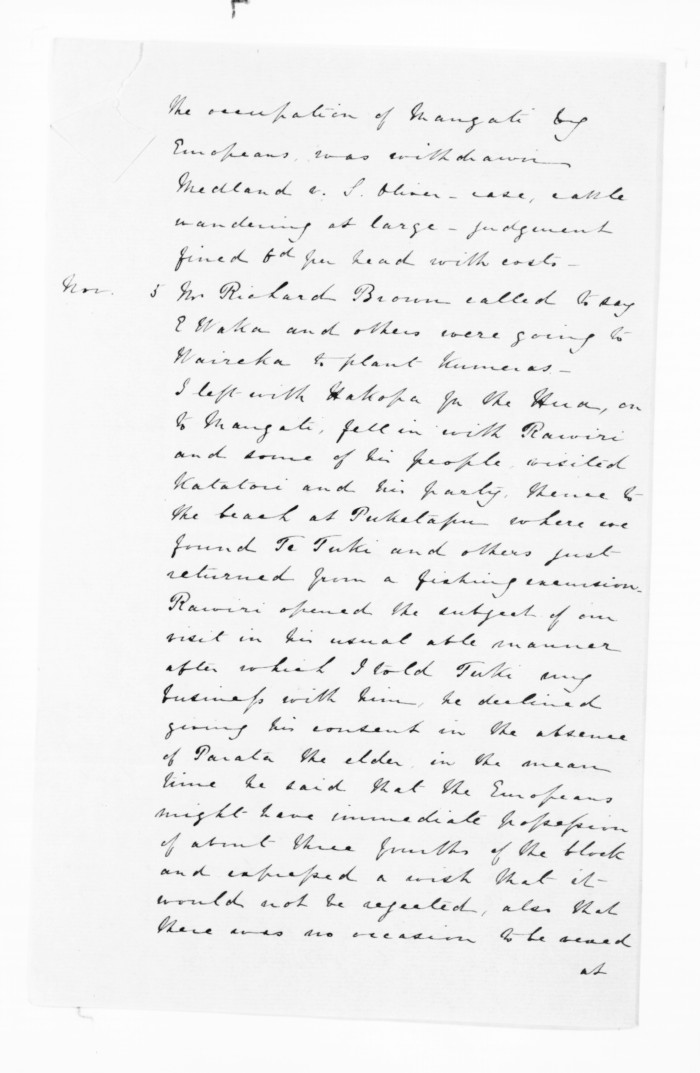 the occupation of Mangati by
Europeans, was withdrawn
Medland v. S. Oliver - case, cattle
wandering at large - judgment
fined 6d per head with costs -
Nov. 5 Mr Richard Brown called to say
E Waka and others were going to
Waireka to plant Kumeras -
I left with Hakopa for the Hua, on
to Mangati, fell in with Rawiri
and some of his people, visited
Katatori and his party, thence to
the beach at Puketapu where we
found Te Tuki and others just
returned from a fishing excursion -
Rawiri opened the subject of our
visit in his usual able manner
after which I told Tuki my
business with him, he declined
giving his consent in the absence
of Parata the elder, in the mean
time he said that the Europeans
might have immediate possession
of about three fourths of the block
and expressed a wish that it
would not be rejected, also that
there was no occasion to be vexed
at